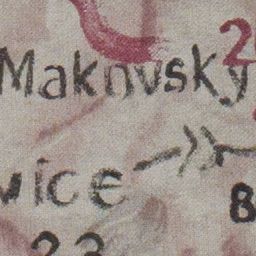 Maknvsky 2
vice B
22